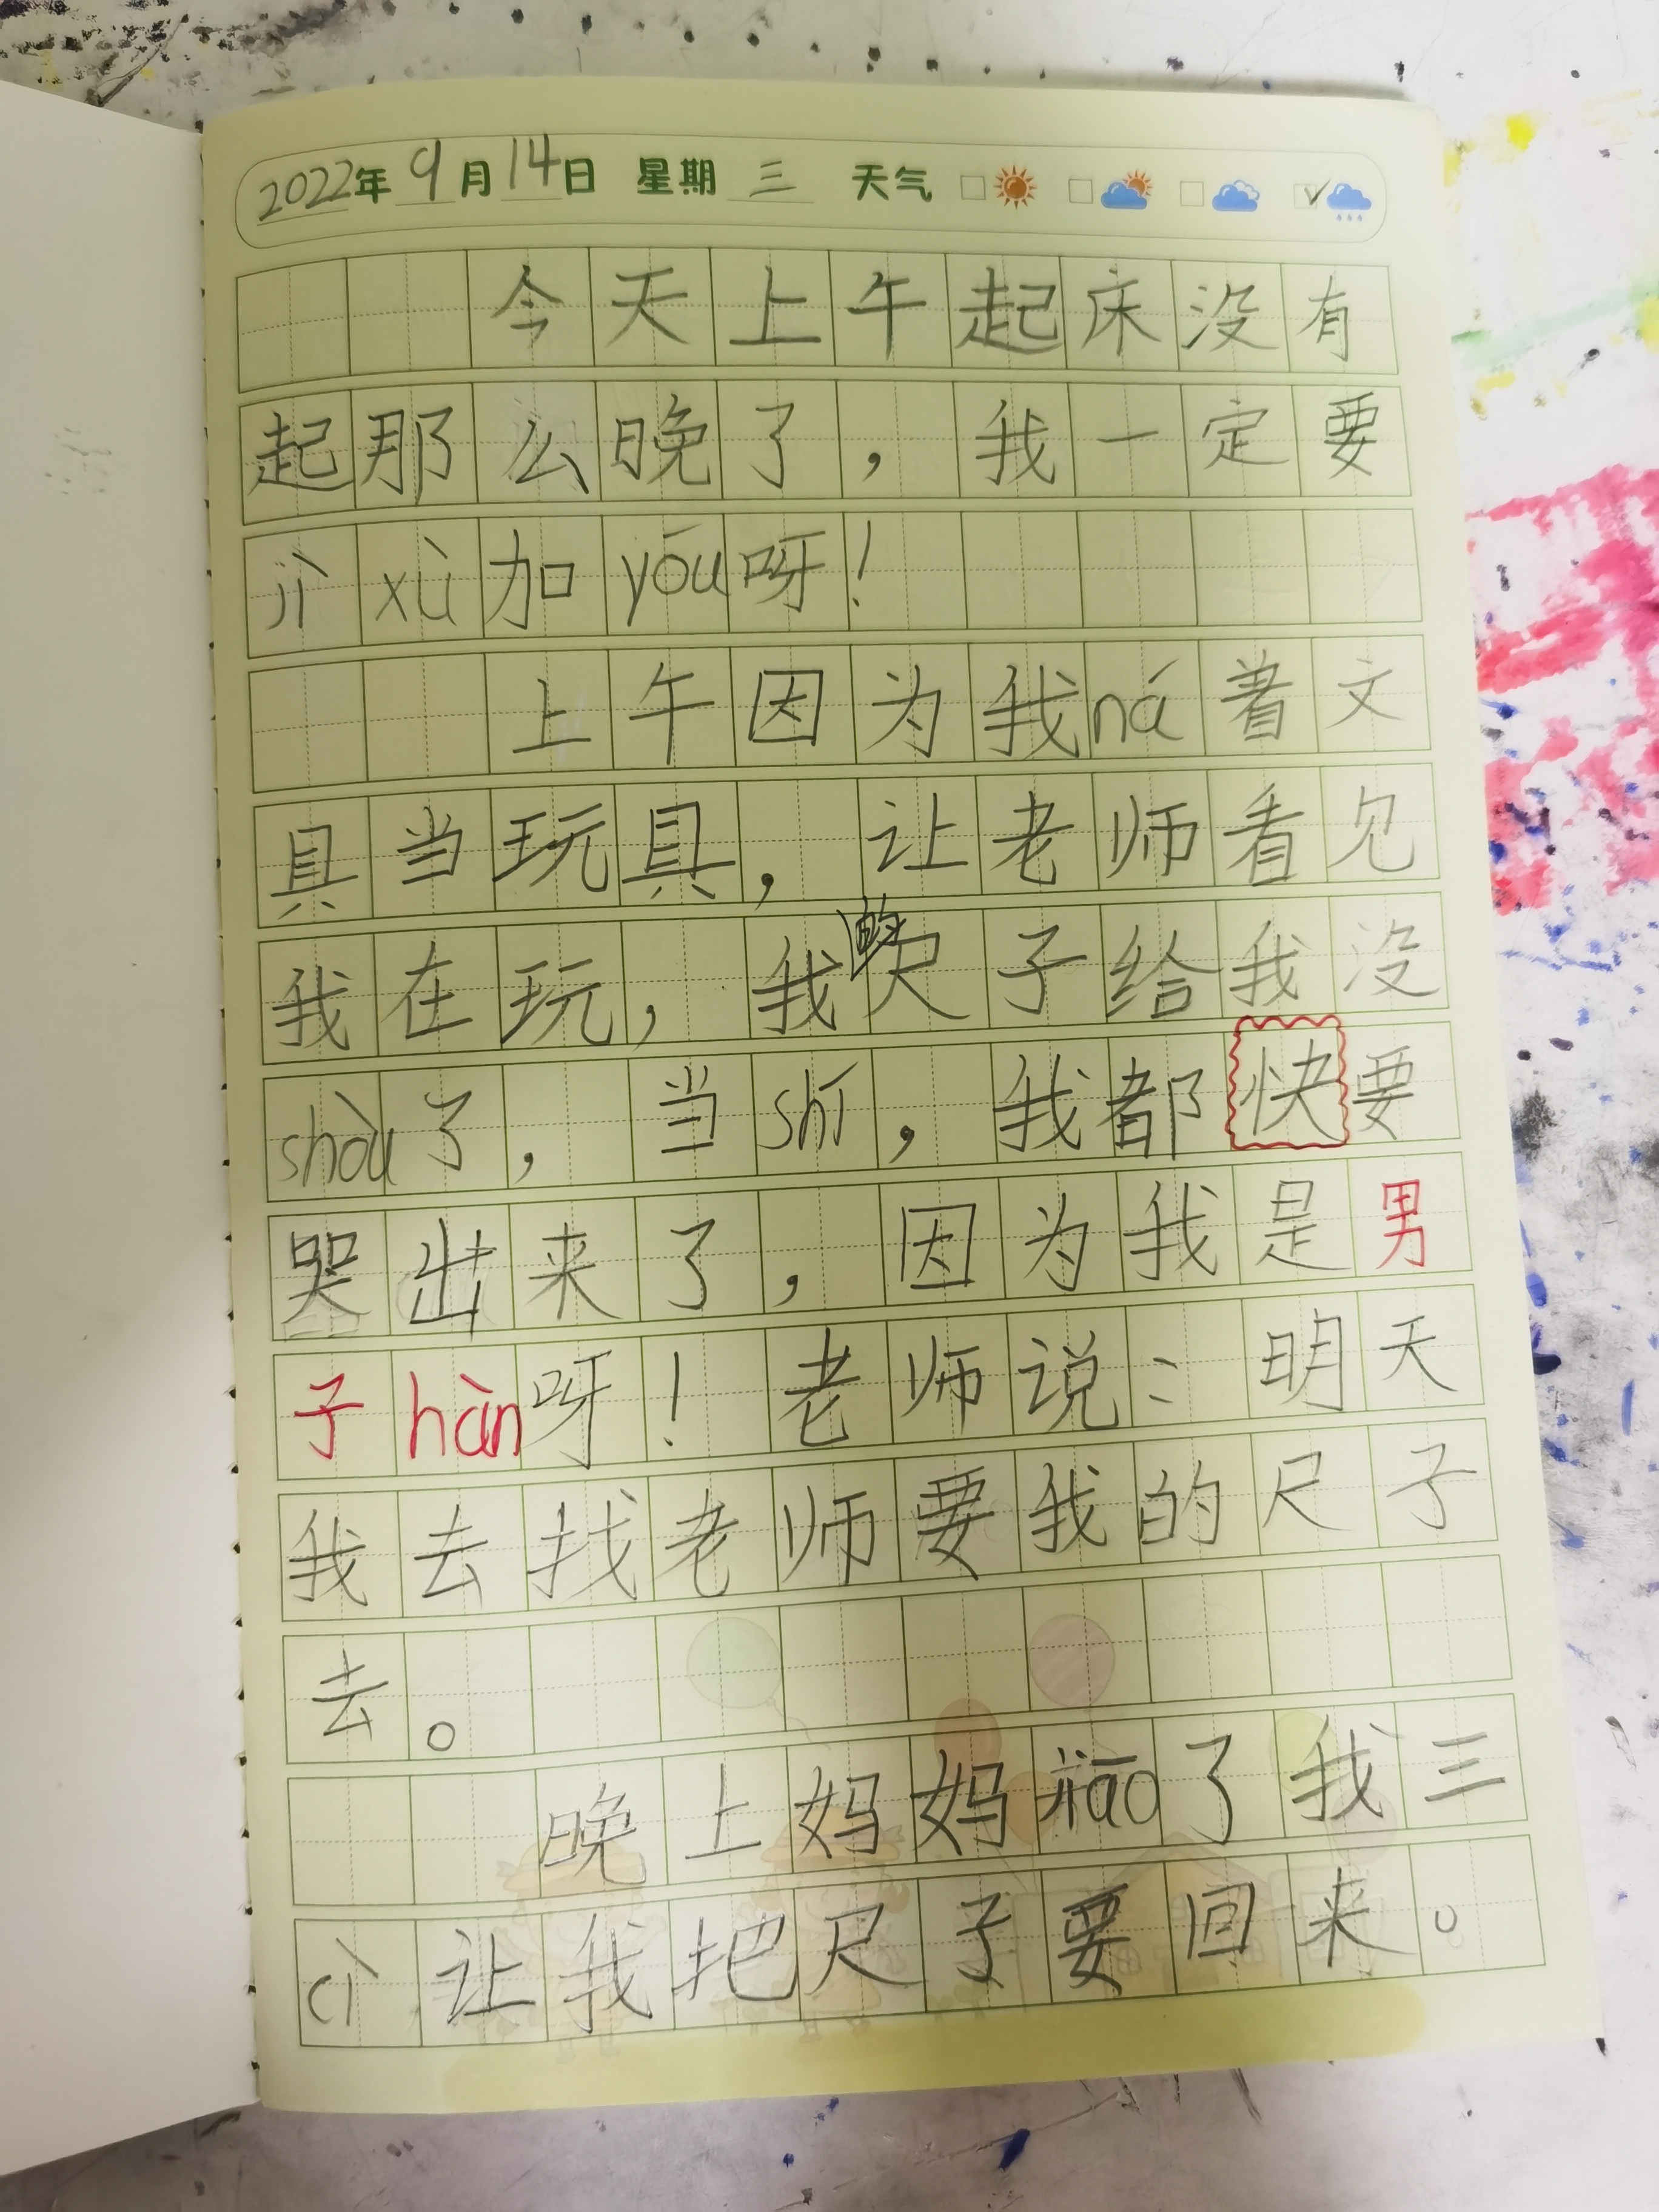 2022年9月14日 星期三 天气
今天上午起床没有
起那么晚了，我一定要
jì xù 加 yōu 呀！
上午因为我 ná 着文
具当玩具，让老师看见
我在玩，我的尺子给我没
shòu 了，当 shī，我都快要
哭出来了，因为我是男
子 hàn 呀！老师说：明天
我去找老师要我的尺子
去。
晚上妈妈 jiāo 了我三
cì 让我把尺子要回来。